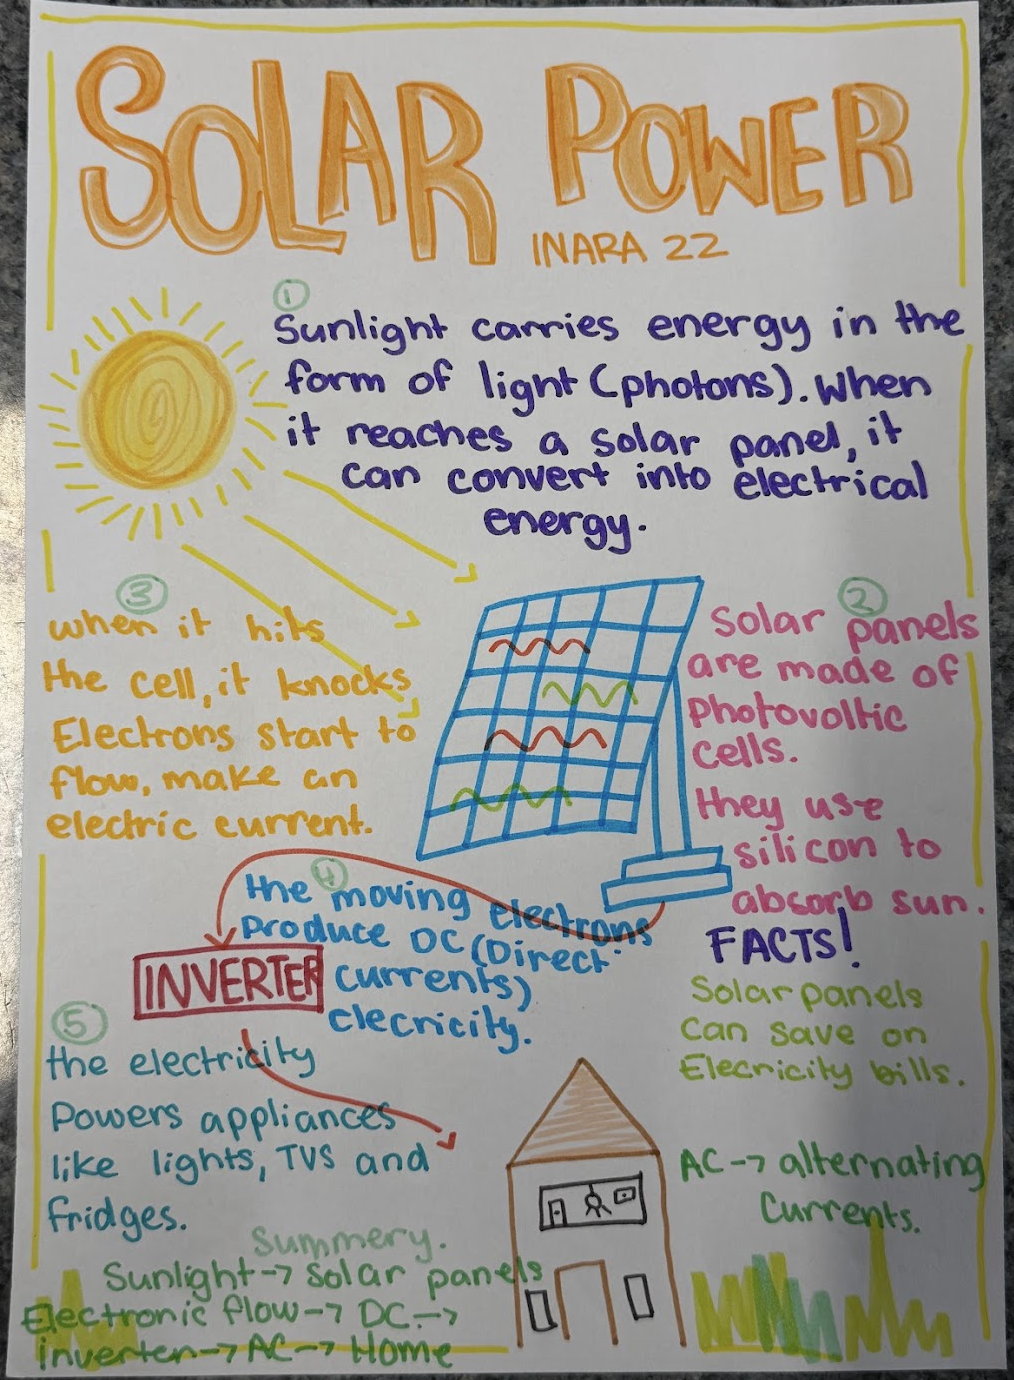 SOLAR POWER
INARA 22
①
Sunlight carries energy in the
form of light (photons). When
it reaches a solar panel, it
can convert into electrical
energy.
②
Solar panels
are made of
Photovoltic
cells.
they use
silicon to
absorb sun.
③
when it hits
the cell, it knocks
Electrons start to
flow, make an
electric current.
④
the moving electrons
Produce DC (Direct
currents)
elecricity.
INVERTER
⑤
the electricity
Powers appliances
like lights, TVS and
fridges.
FACTS!
Solar panels
can save on
Elecricity bills.
AC → alternating
Currents.
Summery.
Sunlight → Solar panels
Electronic flow → DC →
inverter → AC → Home